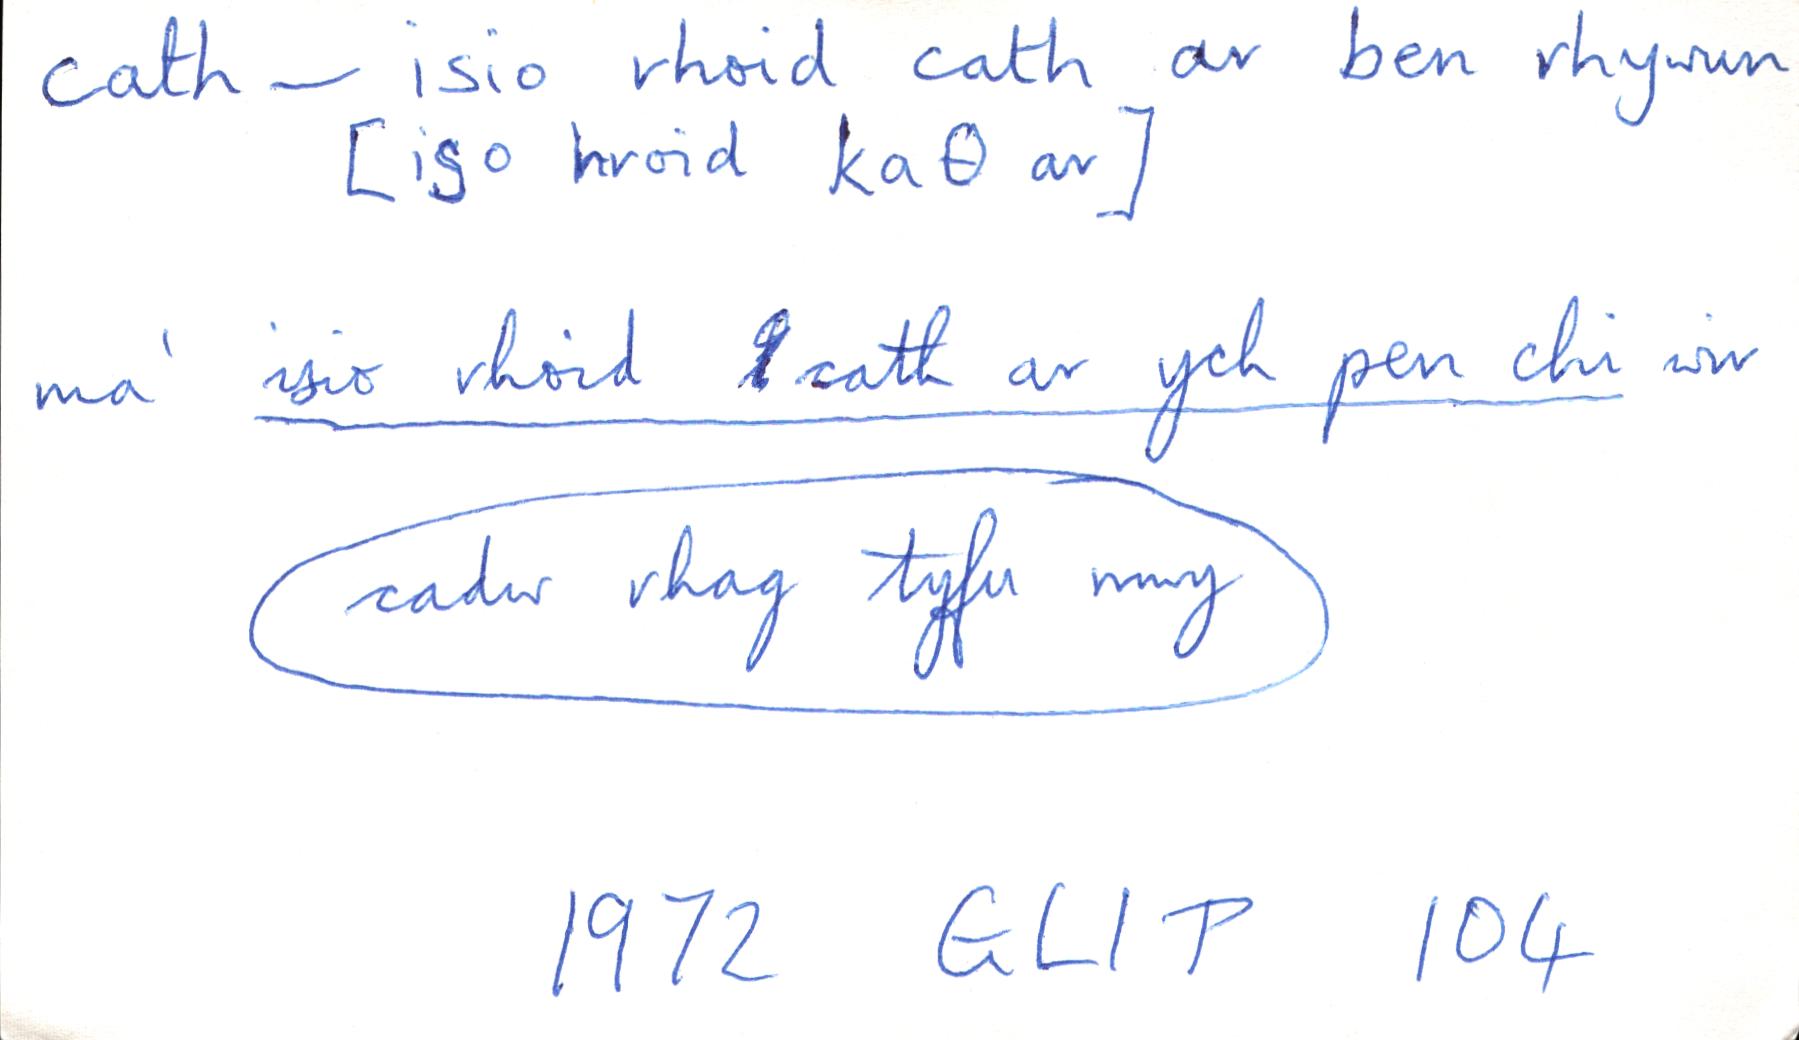 cath — isio rhoid cath ar ben rhywun
[iṣo hroid kaθ ar]
ma' isio rhoid cath ar ych pen chi
cadw rhag tyfu mwy
1972 GLIP 104